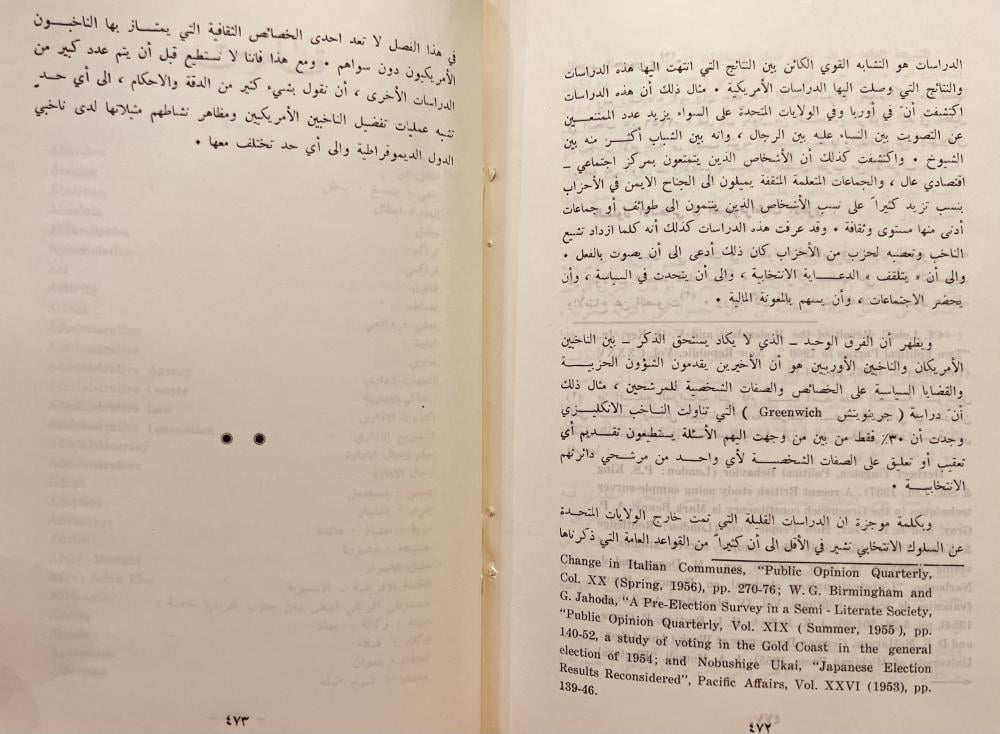 الدراسات هو التشابه القوي الكائن بين النتائج التي انتهت اليها هذه الدراسات
والنتائج التي وصلت اليها الدراسات الأمريكية • مثال ذلك أن هذه الدراسات
اكتشفت أنّ في أوربا وفي الولايات المتحدة على السواء يزيد عدد الممتنعــين
عن التصويت بين النساء عليه بين الرجال ، وانه بين الشباب أكثــر منه بين
الشيوخ • واكتشفت كذلك أن الأشخاص الذين يتمتعون بمركز اجتماعي ــ
اقتصادي عال ، والجماعات المتعلمة المثقفة يميلون الى الجناح الايمن في الأحزاب
بنسب تزيد كثيراً على نسب الأشخاص الذين ينتمون الى طوائف أو جماعات
أدنى منها مستوى وثقافة • وقد عرفت هذه الدراسات كذلك أنه كلما ازداد تشيع
الناخب وتعصبه لحزب من الأحزاب كان ذلك أدعى الى أن يصوت بالفعل •
والى أن « يتلقف » الدعـــاية الانتخابية ، والى أن يتحدث في السياسة ، وأن
يحضر الاجتماعات ، وأن يسهم بالمعونة المالية •
ويظهر أن الفرق الوحيـد ــ الذي لا يكاد يستحق الذكر ــ بين الناخبين
الأمريكان والناخبين الأوربيين هو أن الأخيرين يقدمون الشؤون الحزبيـــة
والقضايا السياسية على الخصائص والصفات الشخصية للمرشحين ، مثال ذلك
أنّ دراسة ( جرينويتش Greenwich ) التي تناولت الناخب الانكليــزي
وجدت أن ٣٠٪ فقط من بين من وجهت اليهم الأسئلة يستطيعون تقديـم أي
تعقيب أو تعليق على الصفات الشخصيــة لأي واحــد من مرشحي دائرتهم
الانتخابيــة •
وبكلمة موجزة ان الدراسات القليلة التي تمت خارج الولايات المتحـدة
عن السلوك الانتخابي تشير في الأقل الى أن كثيراً من القواعد العامة التي ذكرناها
Change in Italian Communes, "Public Opinion Quarterly,
Col. XX (Spring, 1956), pp. 270-76; W. G. Birmingham and
G. Jahoda, "A Pre-Election Survey in a Semi - Literate Society,
"Public Opinion Quarterly, Vol. XIX ( Summer, 1955 ), pp.
140-52, a study of voting in the Gold Coast in the general
election of 1954; and Nobushige Ukai, "Japanese Election
Results Reconsidered", Pacific Affairs, Vol. XXVI (1953), pp.
139-46.
٤٧٢
في هذا الفصل لا تعد احدى الخصائص الثقافية التي يمتــاز بها الناخبــون
الأمريكيون دون سواهم • ومع هذا فاننا لا نستطيع قبل أن يتم عدد كبير من
الدراسات الأخرى ، أن نقول بشيء كثير من الدقة والاحكام ، الى أي حــد
تشبه عمليات تفضيل الناخبين الأمريكيين ومظاهر نشاطهم مثيلاتها لدى ناخبي
الدول الديموقراطية والى أي حد تختلف معها •
٤٧٣